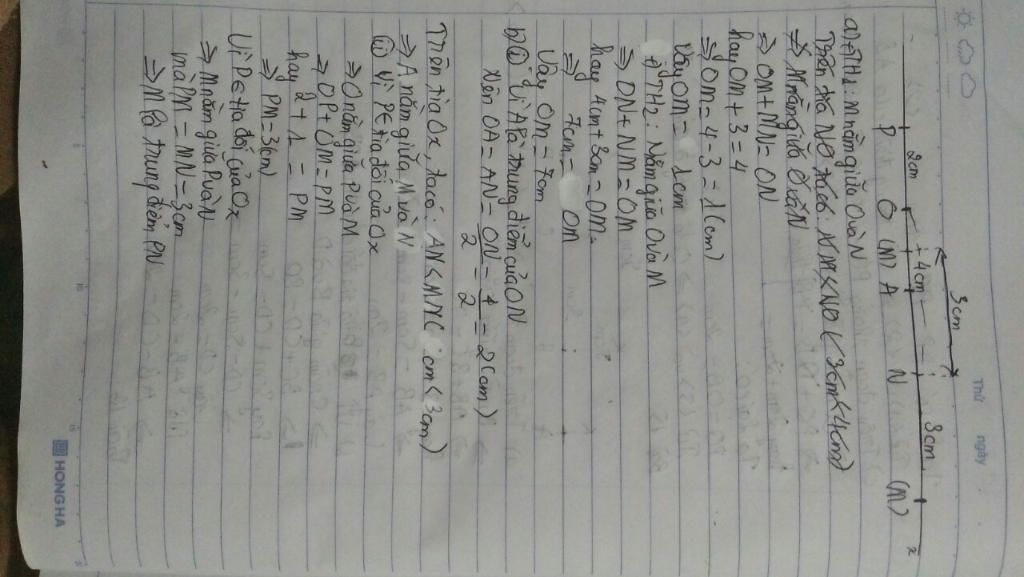 Thứ ngày
3cm
2cm 4cm 3cm
P O (M) A N (M) x
a) +TH1: M nằm giữa O và N
Trên tia NO, ta có: NM < NO (3cm < 4cm)
=> M nằm giữa O và N
=> OM + MN = ON
hay OM + 3 = 4
=> OM = 4 - 3 = 1 (cm)
Vậy OM = 1cm
+) TH2: N nằm giữa O và M
=> ON + NM = OM
hay 4cm + 3cm = OM
=> 7cm = OM
Vậy OM = 7cm
b) (i) Vì A là trung điểm của ON
nên OA = AN = ON/2 = 4/2 = 2 (cm)
Trên tia Ox, ta có: AN < MN ( cm < 3cm)
=> A nằm giữa M và N
(ii) Vì P ∈ tia đối của Ox
=> O nằm giữa P và M
=> OP + OM = PM
hay 2 + 1 = PM
=> PM = 3 (cm)
Vì P ∈ tia đối của Ox
=> M nằm giữa P và N
mà PM = MN = 3cm
=> M là trung điểm PN
HONG HA